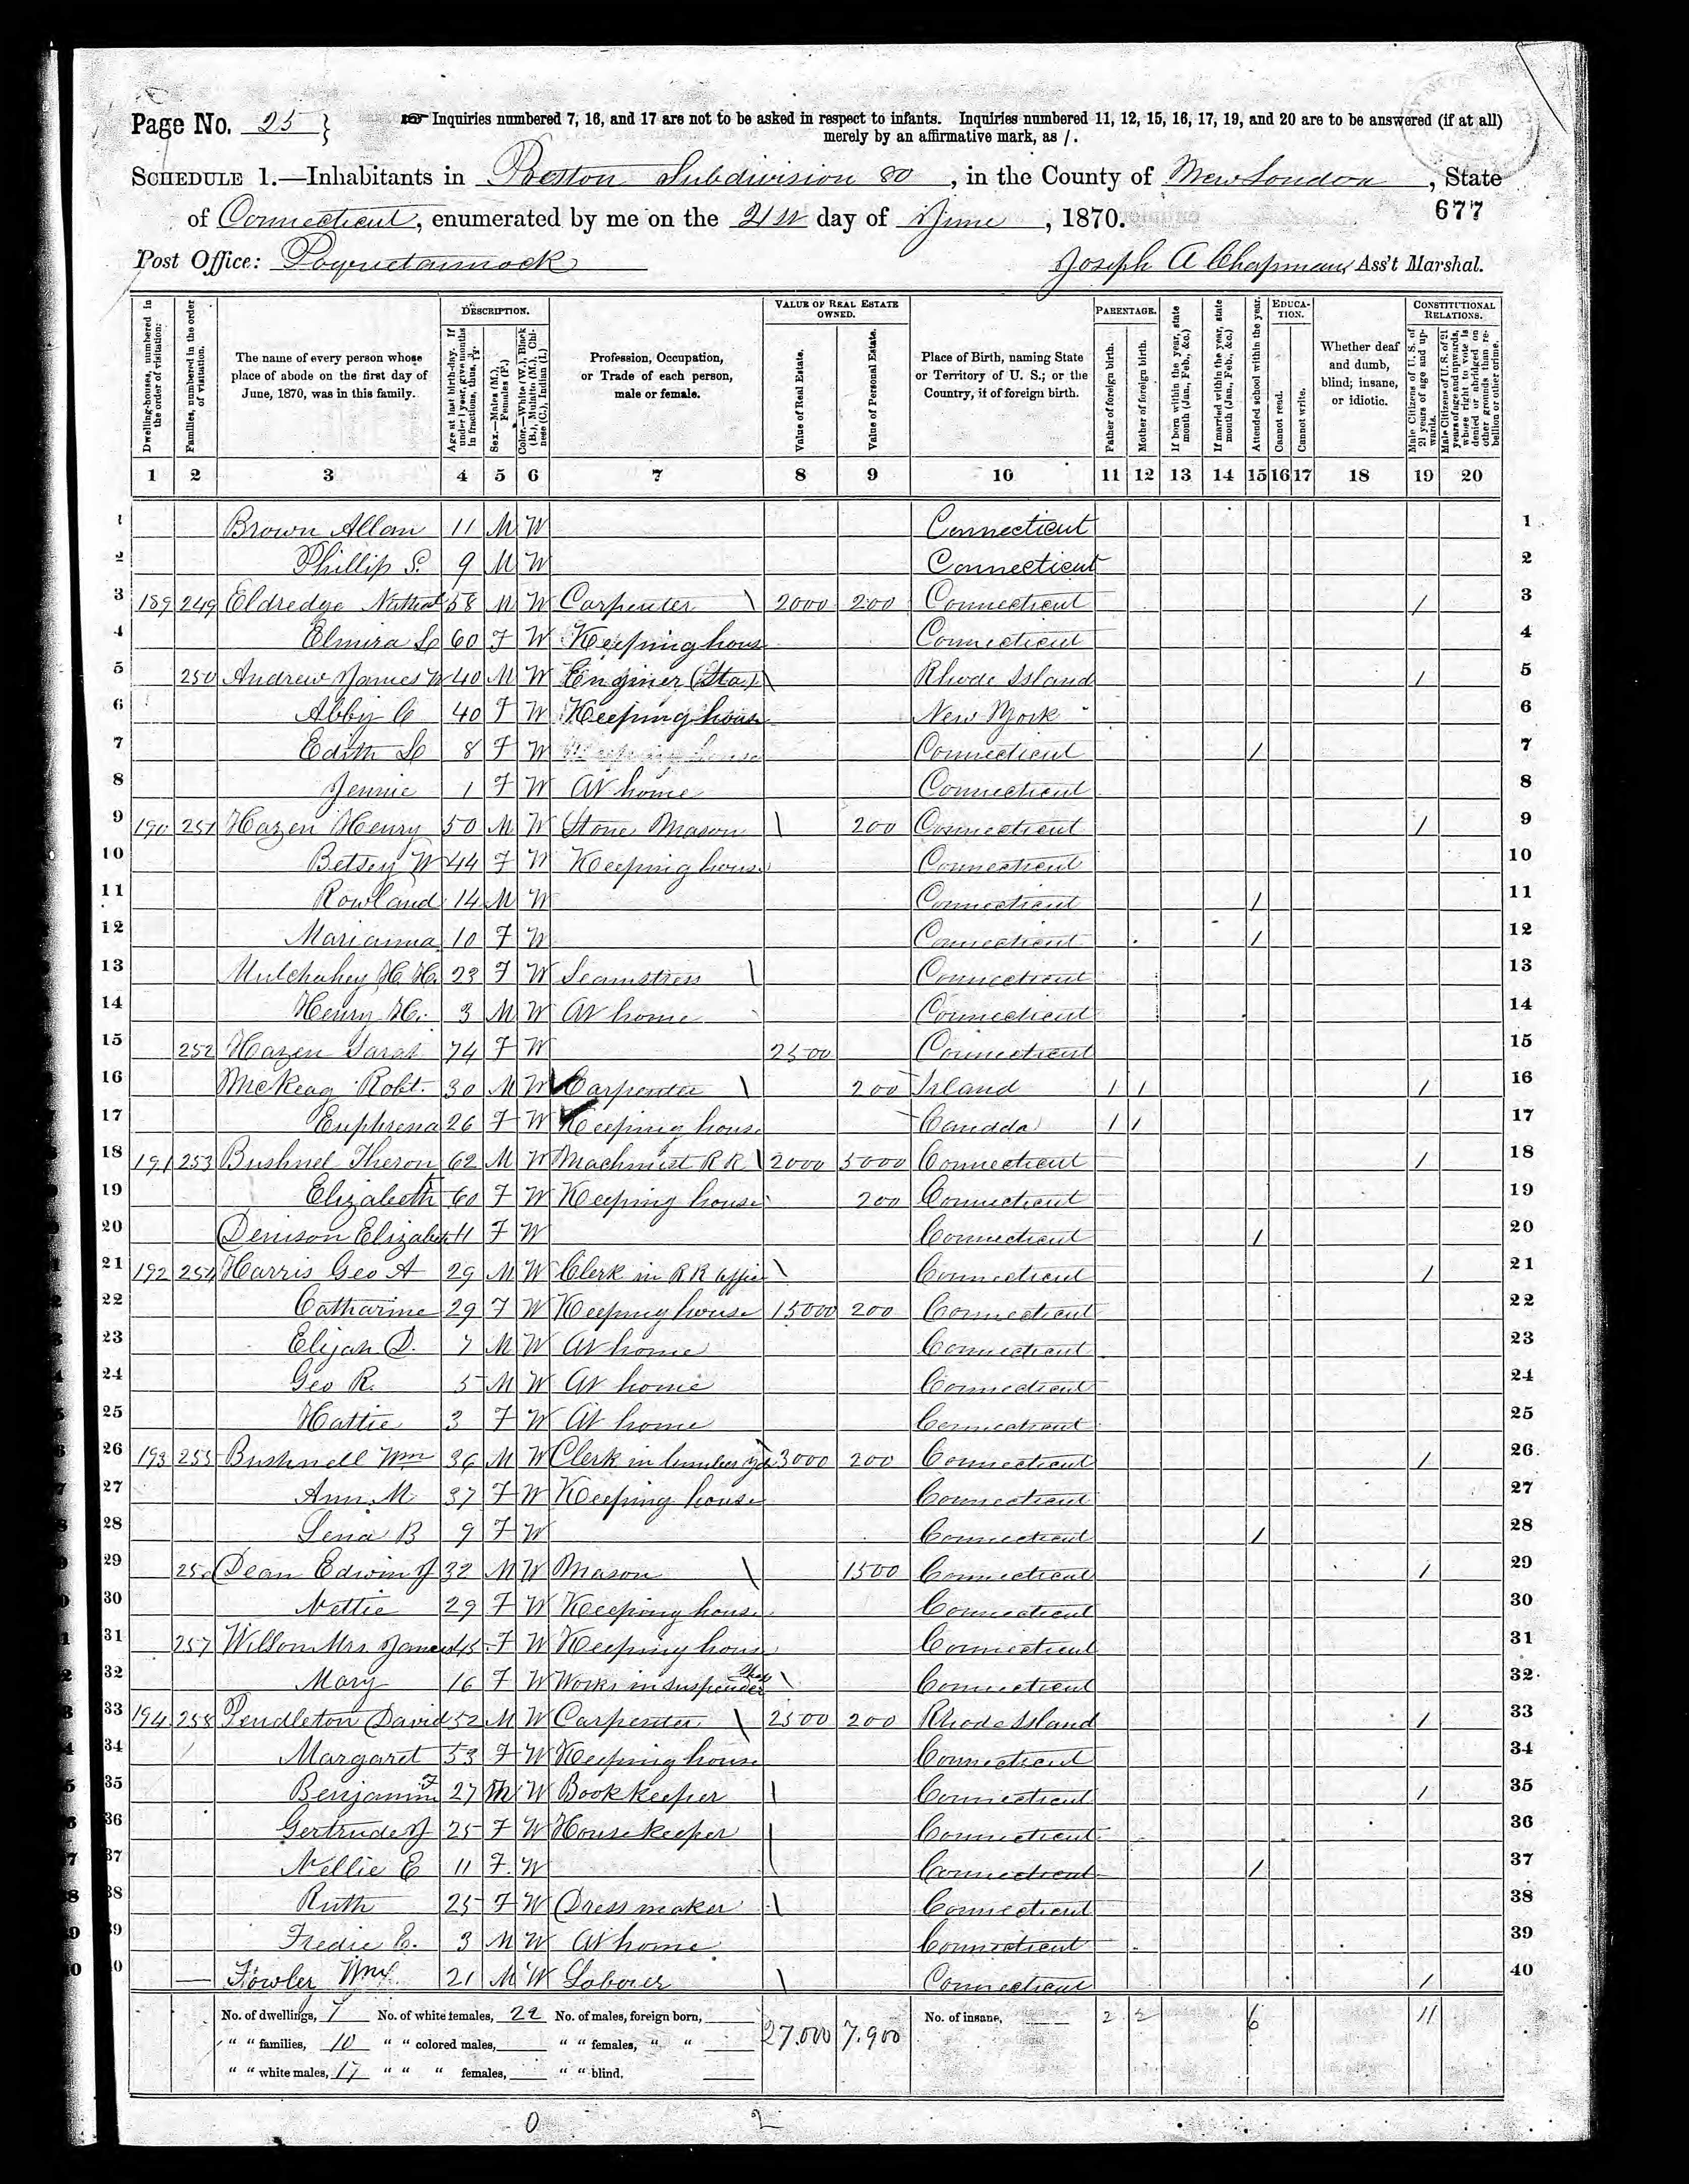 Page No. 25 }
☞ Inquiries numbered 7, 16, and 17 are not to be asked in respect to infants. Inquiries numbered 11, 12, 15, 16, 17, 19, and 20 are to be answered (if at all)
merely by an affirmative mark, as /.
SCHEDULE 1.—Inhabitants in Preston Subdivision 80, in the County of New London, State
of Connecticut, enumerated by me on the 21st day of June, 1870.
677
Post Office: Poquetannock
Joseph A Chapman, Ass't Marshal.
Dwelling-houses, numbered in the order of visitation.
Families, numbered in the order of visitation.
The name of every person whose place of abode on the first day of June, 1870, was in this family.
DESCRIPTION.
Age at last birth-day. If under 1 year, give months in fractions, thus, 3/12.
Sex.—Males (M.), Females (F.)
Color.—White (W.), Black (B.), Mulatto (M.), Chinese (C.), Indian (I.)
Profession, Occupation, or Trade of each person, male or female.
VALUE OF REAL ESTATE OWNED.
Value of Real Estate.
Value of Personal Estate.
Place of Birth, naming State or Territory of U. S.; or the Country, if of foreign birth.
PARENTAGE.
Father of foreign birth.
Mother of foreign birth.
If born within the year, state month (Jan., Feb., &c.)
If married within the year, state month (Jan., Feb., &c.)
Attended school within the year.
EDUCATION.
Cannot read.
Cannot write.
Whether deaf and dumb, blind, insane, or idiotic.
CONSTITUTIONAL RELATIONS.
Male Citizens of U. S. of 21 years of age and upwards.
Male Citizens of U. S. of 21 years of age and upwards, whose right to vote is denied or abridged on other grounds than rebellion or other crime.
1 2 3 4 5 6 7 8 9 10 11 12 13 14 15 16 17 18 19 20
1 Brown Allan 11 M W Connecticut 1
2 Phillip S. 9 M W Connecticut 2
3 189 249 Eldredge Nathal 58 M W Carpenter \ 2000 200 Connecticut / 3
4 Elmira L 60 F W Keeping hous Connecticut 4
5 250 Andrew James W 40 M W Enginer (Sta) \ Rhode Island / 5
6 Abby C 40 F W Keeping house New York 6
7 Edith L 8 F W Connecticut / 7
8 Jennie 1 F W At home Connecticut 8
9 190 251 Hazen Henry 50 M W Stone Mason \ 200 Connecticut / 9
10 Betsey W 44 F W Keeping house Connecticut 10
11 Rowland 14 M W Connecticut / 11
12 Marianna 10 F W Connecticut / 12
13 Mulchahey H. H. 23 F W Seamstress \ Connecticut 13
14 Henry H. 3 M W At home Connecticut 14
15 252 Hazen Sarah 74 F W 2500 Connecticut 15
16 McKeag Robt. 30 M W Carpenter \ 200 Irland / / / 16
17 Euphrena 26 F W Keeping house Canadda / / 17
18 191 253 Bushnel Theron 62 M W Machinist R R \ 2000 5000 Connecticut / 18
19 Elizabeth 60 F W Keeping house 200 Connecticut 19
20 Denison Elizabeth 11 F W Connecticut / 20
21 192 254 Harris Geo A 29 M W Clerk in R R office \ Connecticut / 21
22 Catharine 29 F W Keeping house 15000 200 Connecticut 22
23 Elijah D. 7 M W At home Connecticut 23
24 Geo R. 5 M W At home Connecticut 24
25 Hattie 3 F W At home Connecticut 25
26 193 255 Bushnell Wm 36 M W Clerk in lumber yd \ 3000 200 Connecticut / 26
27 Ann M. 37 F W Keeping house Connecticut 27
28 Lena B 9 F W Connecticut / 28
29 256 Dean Edwin J 32 M W Mason \ 1500 Connecticut / 29
30 Nettie 29 F W Keeping house Connecticut 30
31 257 Willson Mrs James 45 F W Keeping house Connecticut 31
32 Mary 16 F W Works in suspender Shop \ Connecticut 32
33 194 258 Pendleton David 52 M W Carpenter \ 2500 200 Rhode Island / 33
34 Margaret 53 F W Keeping house Connecticut 34
35 Benjamin F 27 M W Book keeper \ Connecticut / 35
36 Gertrude J 25 F W House keeper \ Connecticut 36
37 Nellie E 11 F W Connecticut / 37
38 Ruth 25 F W Dress maker \ Connecticut 38
39 Fredie E. 3 M W At home Connecticut 39
40 — Fowler Wm 21 M W Laborer \ Connecticut / 40
No. of dwellings, 7 No. of white females, 22 No. of males, foreign born, 27.000 7.900 No. of insane, 2 2 6 11
" " families, 10 " " colored males, " " females, " "
" " white males, 17 " " " females, " " blind,
0 2